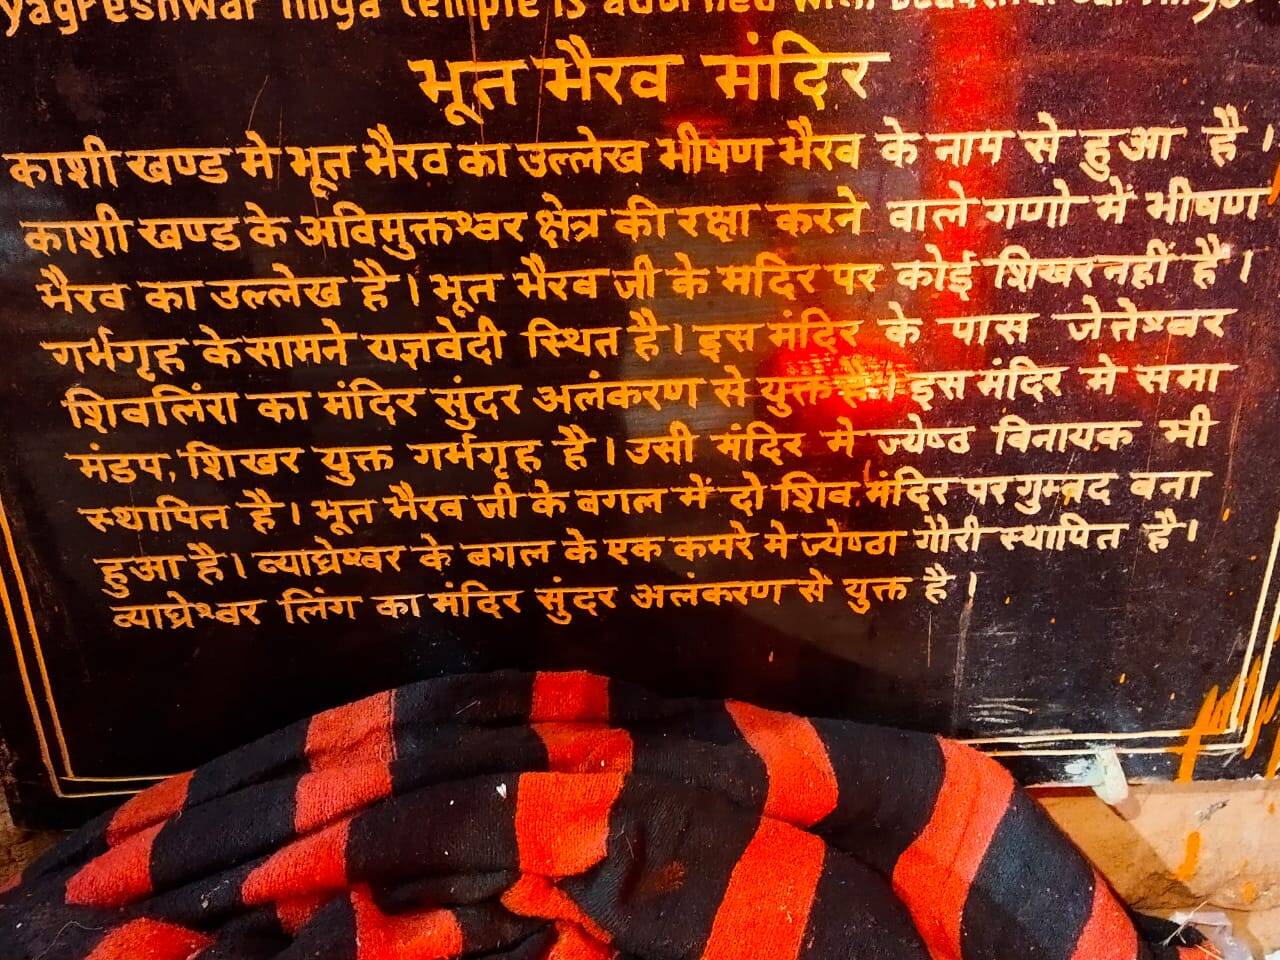 yagreshwar linga temple is adorned with beautiful carvings.
भूत भैरव मंदिर
काशी खण्ड मे भूत भैरव का उल्लेख भीषण भैरव के नाम से हुआ है ।
काशी खण्ड के अविमुक्तश्वर क्षेत्र की रक्षा करने वाले गणो में भीषण
भैरव का उल्लेख है । भूत भैरव जी के मदिर पर कोई शिखर नहीं है ।
गर्भगृह के सामने यज्ञवेदी स्थित है । इस मंदिर के पास जेतेश्वर
शिवलिंग का मंदिर सुंदर अलंकरण से युक्त है । इस मंदिर मे सभा
मंडप, शिखर युक्त गर्भगृह है । उसी मंदिर मे ज्येष्ठ विनायक भी
स्थापित है । भूत भैरव जी के बगल में दो शिव मंदिर पर गुम्बद बना
हुआ है । व्याघ्रेश्वर के बगल के एक कमरे मे ज्येष्ठा गौरी स्थापित है ।
व्याघ्रेश्वर लिंग का मंदिर सुंदर अलंकरण से युक्त है ।